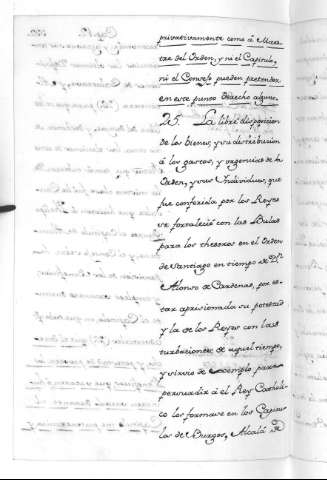 privativamente como á Maes-
tre del Orden, y ni el Capitulo,
ni el Consejo pueden pretender
en este punto derecho alguno.
25. La libre disposicion
de los bienes, y su distribucion
á los gastos, y urgencias de la
Orden, y sus Individuos, que
fue conferida por los Reyes
se fortaleció con las Bulas
para los thesoros en el Orden
de Santiago en tiempo de Dn.
Alonso de Cardenas, por es-
tar aprisionada su potestad
y la de los Reyes con las
turbaciones de aquel tiempo,
y sirvió de exemplo para
persuadir á el Rey Catholi-
co los formase en los Capitu-
los de Burgos, Alcalá de